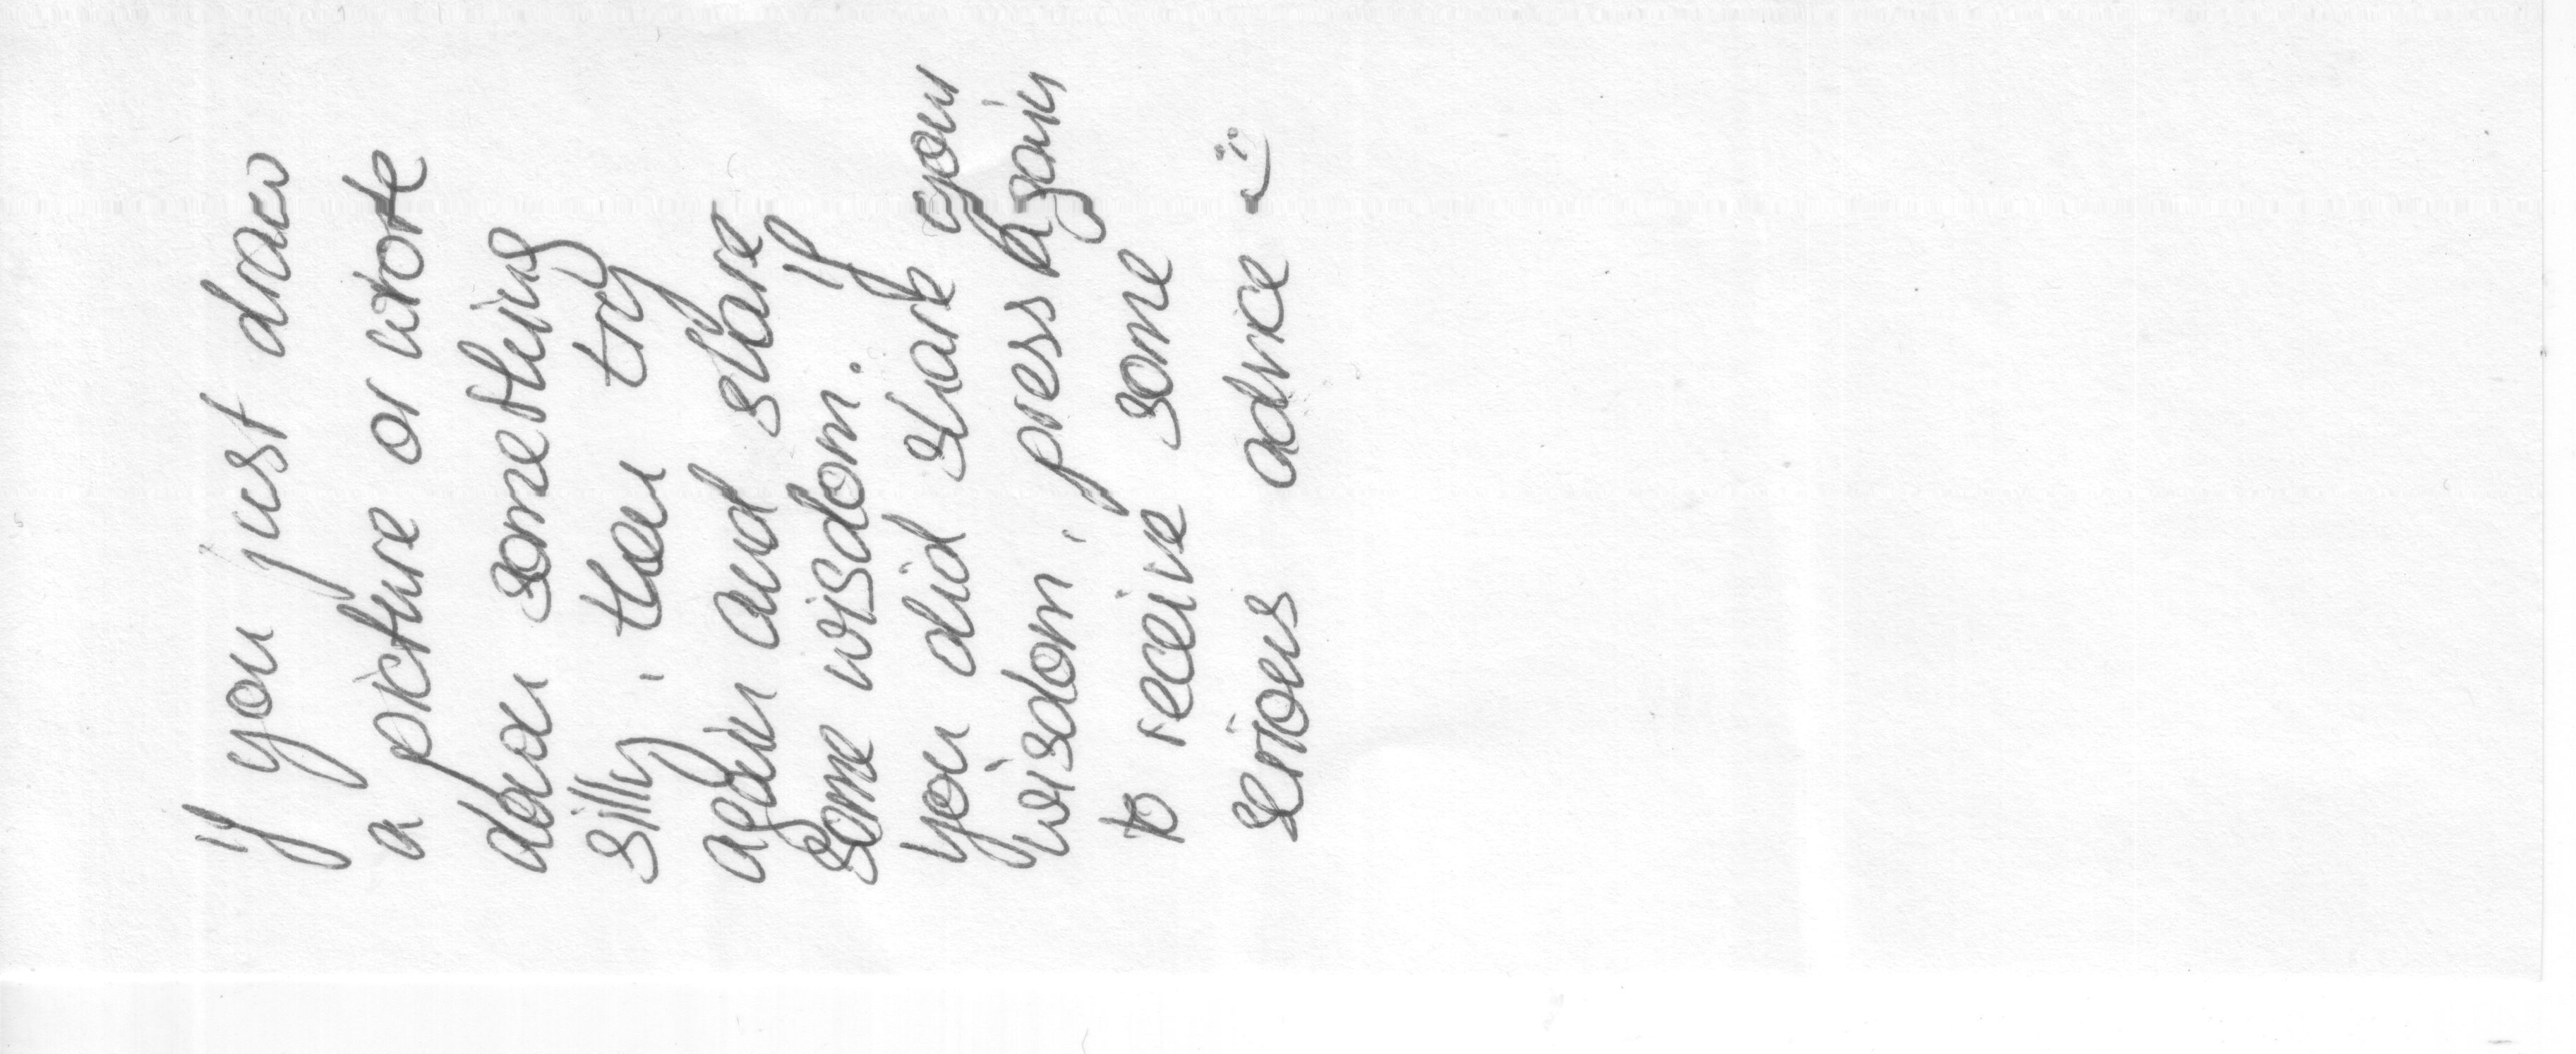 if you just draw
a picture or wrote
down something
silly, then try
again and share
some wisdom. If
you did share your
wisdom, press again
to receive some
serious advice :)